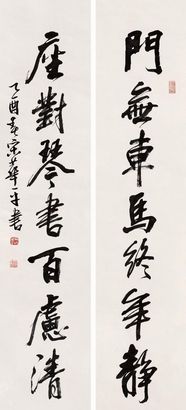 門無車馬終年靜
座對琴書百慮清
乙酉年宋華平書